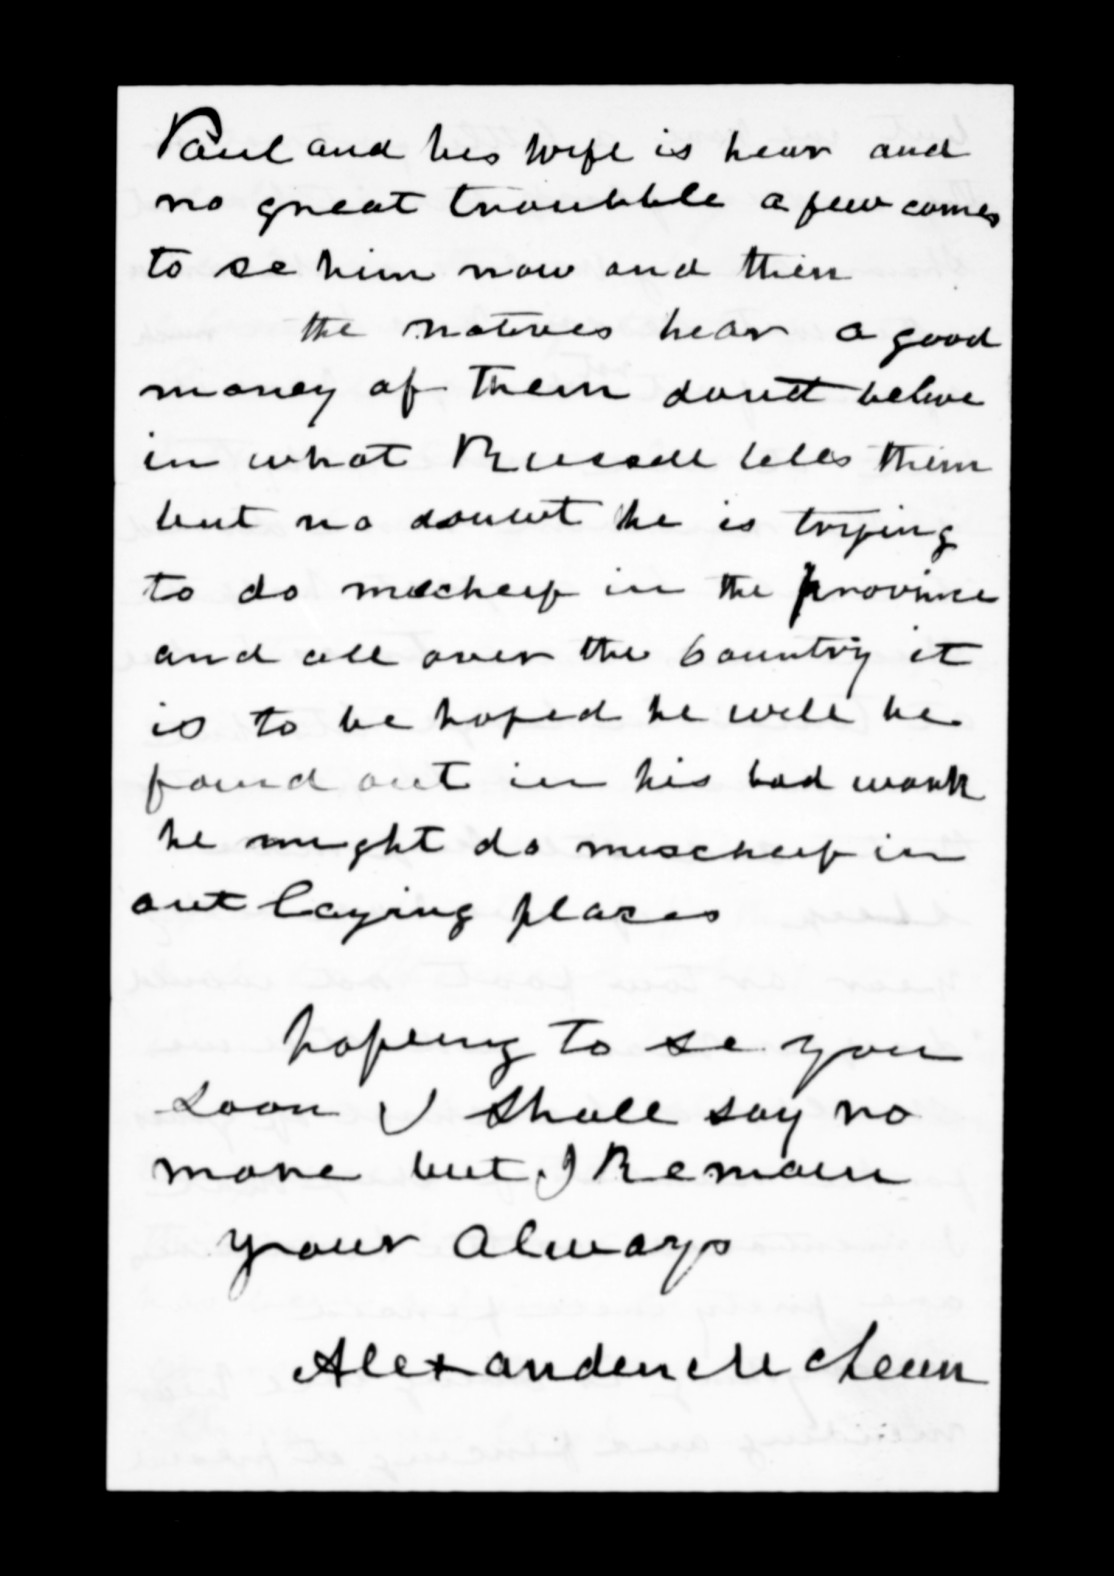 Paul and his wife is hear and
no great troubble a few comes
to se him now and then
the natives hear a good
maney of them dont belive
in what Russell tells them
but no doubt he is trying
to do mischeif in the province
and all over the country it
is to be hoped he will be
found out in his bad work
he might do mischeif in
out laying places
hoping to se you
soon I Shall say no
more but I Remain
your Always
Alexander McLean